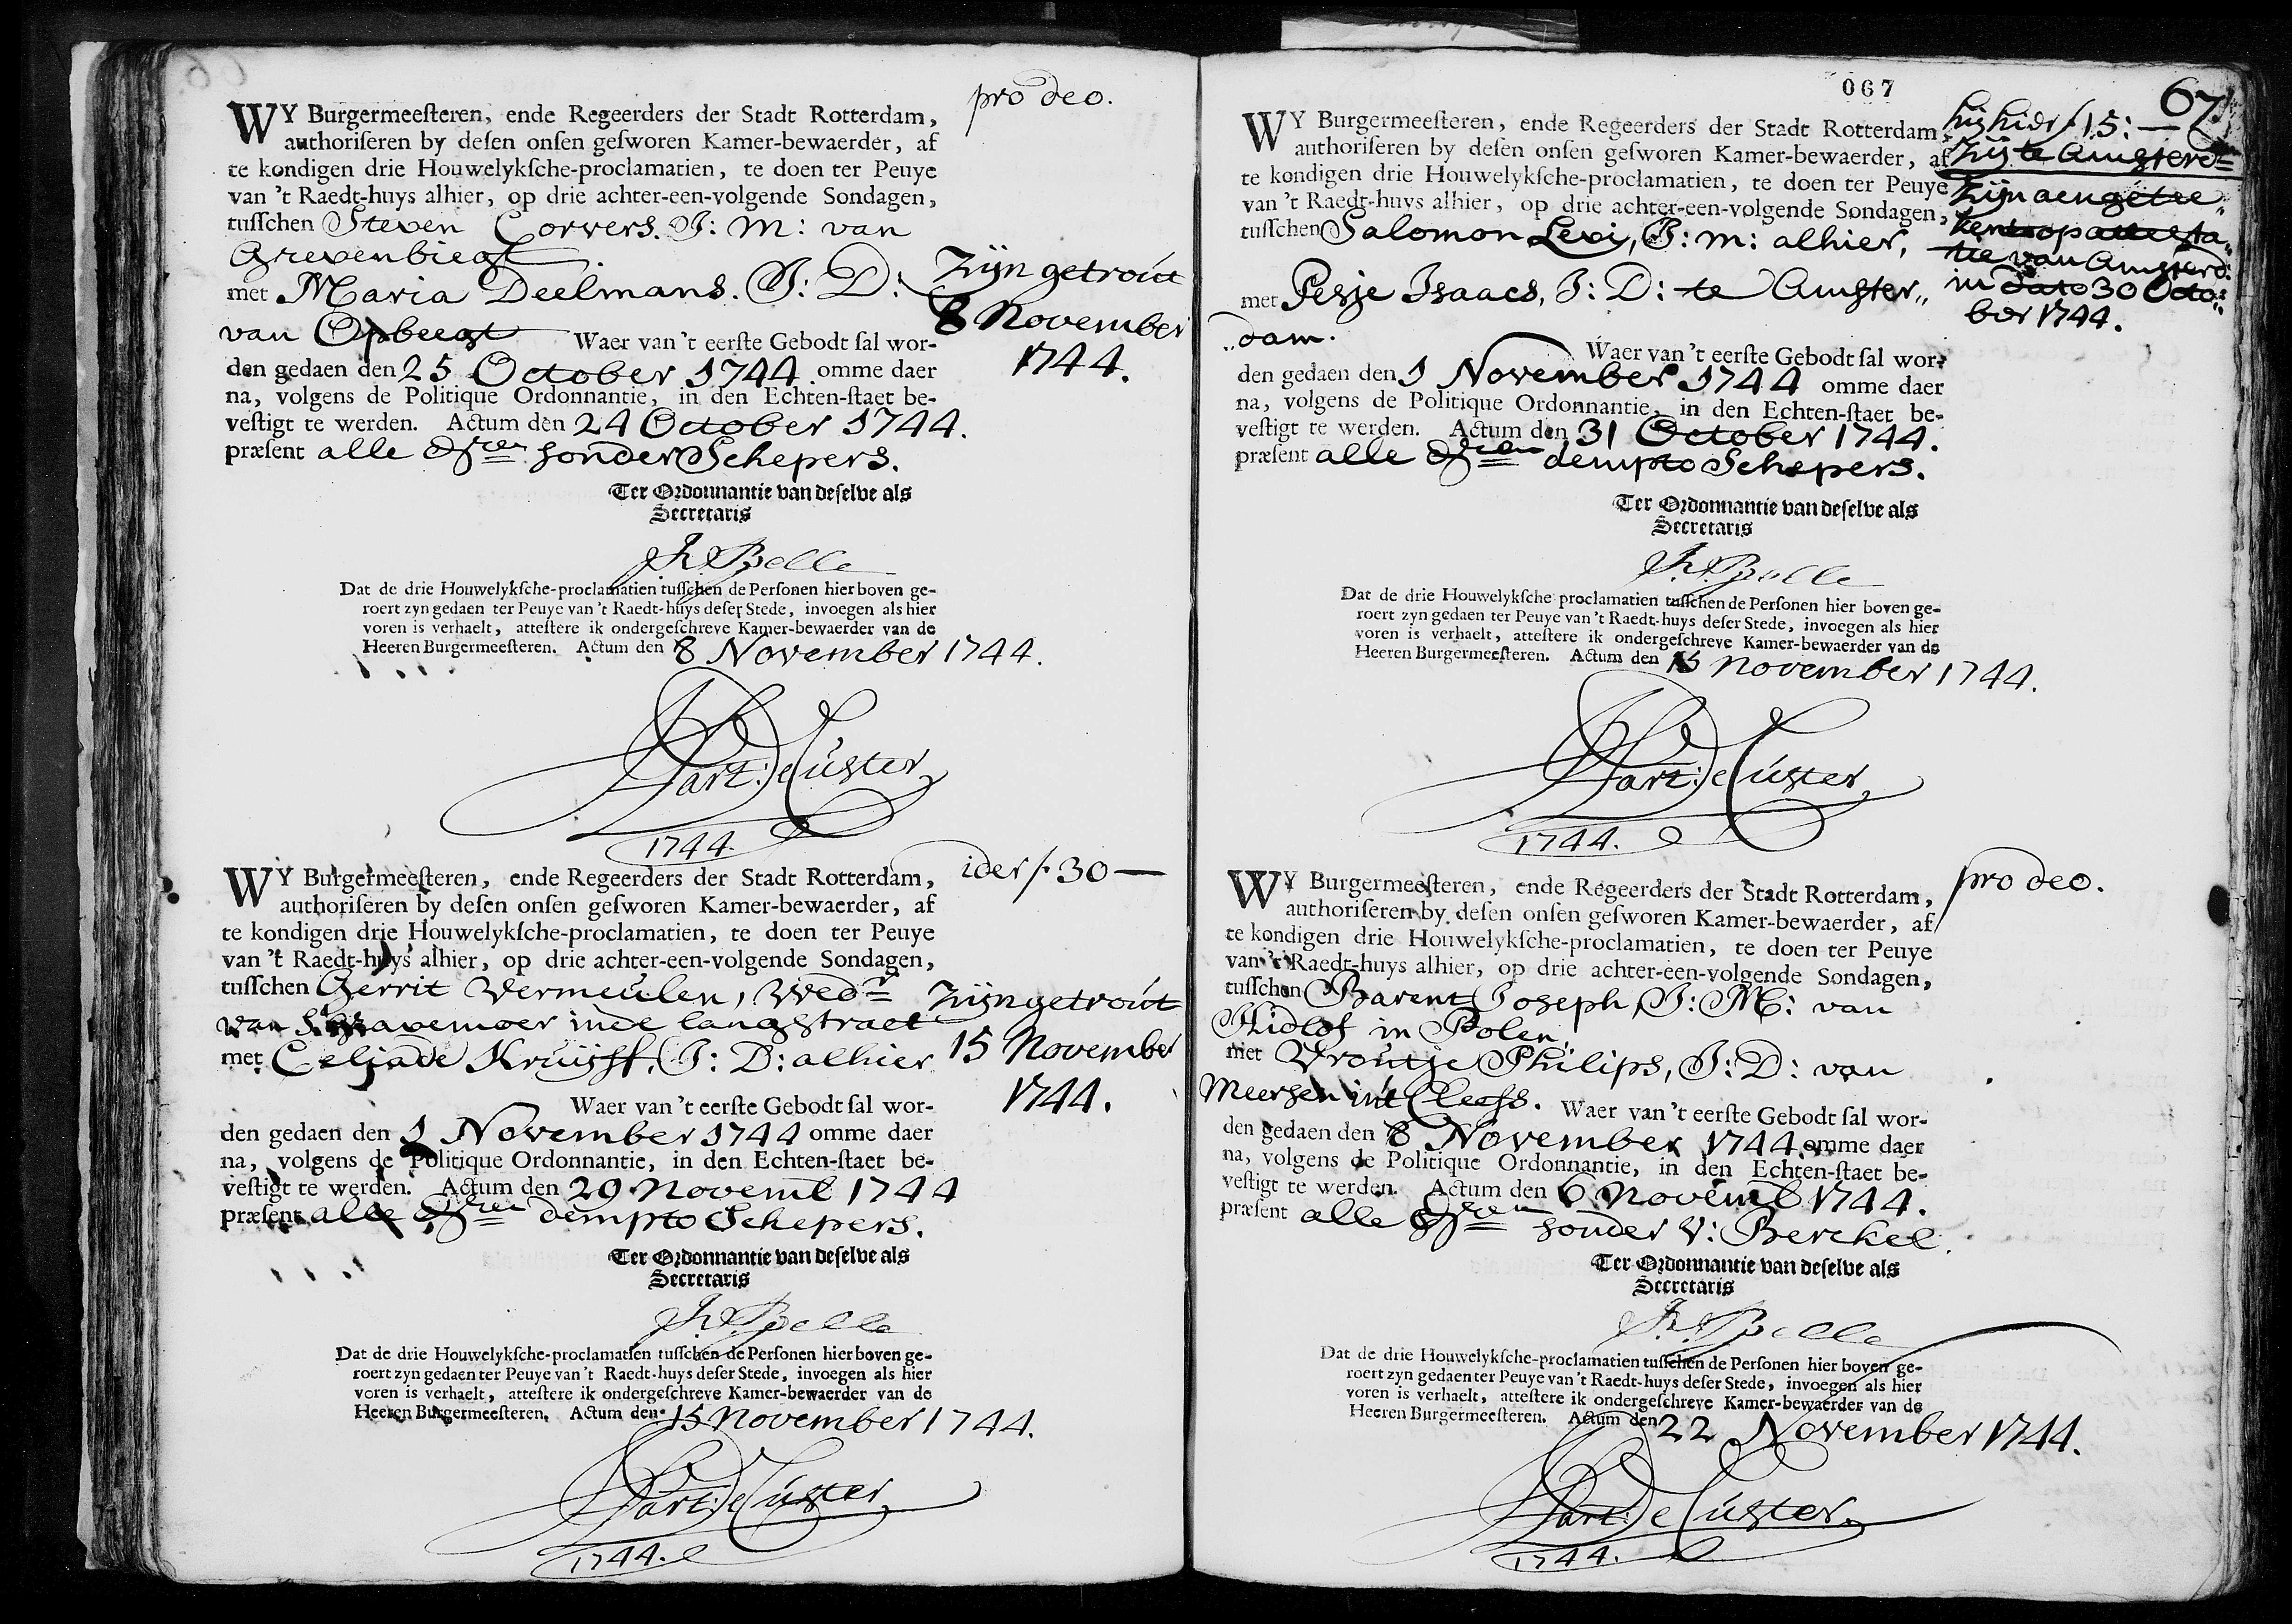 pro deo.
WY Burgermeesteren, ende Regeerders der Stadt Rotterdam,
authoriseren by desen onsen gesworen Kamer-bewaerder, af
te kondigen drie Houwelyksche-proclamatien, te doen ter Peuye
van 't Raedt-huys alhier, op drie achter-een-volgende Sondagen,
tusschen Steven Corvers. J: M: van
Grevenbiegt.
met Maria Deelmans. J: D:
van Opbiegt Waer van 't eerste Gebodt sal wor-
den gedaen den 25 October 1744. omme daer
na, volgens de Politique Ordonnantie, in den Echten-staet be-
vestigt te werden. Actum den 24 October 1744.
præsent alle sonder Schepers.
Zijn getrout
8 November
1744.
Ter Ordonnantie van deselve als
Secretaris
Dat de drie Houwelyksche-proclamatien tusschen de Personen hier boven ge-
roert zyn gedaen ter Peuye van 't Raedt-huys deser Stede, invoegen als hier
voren is verhaelt, attestere ik ondergeschreve Kamer-bewaerder van de
Heeren Burgermeesteren. Actum den 8 November 1744.
Mart: de Custer
1744.
ider f. 30 —
WY Burgermeesteren, ende Regeerders der Stadt Rotterdam,
authoriseren by desen onsen gesworen Kamer-bewaerder, af
te kondigen drie Houwelyksche-proclamatien, te doen ter Peuye
van 't Raedt-huys alhier, op drie achter-een-volgende Sondagen,
tusschen Gerrit Vermeulen, Wedr
van S'Gravemoer inde langstraet
met Celja de Kruijff, J: D: alhier
Waer van 't eerste Gebodt sal wor-
den gedaen den 1 November 1744 omme daer
na, volgens de Politique Ordonnantie, in den Echten-staet be-
vestigt te werden. Actum den 29 Novemb 1744
præsent alle dempto Schepers.
Zijn getrout
15 November
1744.
Ter Ordonnantie van deselve als
Secretaris
Dat de drie Houwelyksche-proclamatien tusschen de Personen hier boven ge-
roert zyn gedaen ter Peuye van 't Raedt-huys deser Stede, invoegen als hier
voren is verhaelt, attestere ik ondergeschreve Kamer-bewaerder van de
Heeren Burgermeesteren. Actum den 15 November 1744.
Mart: de Custer
1744.
067
67
hij hier f 15: —
Zij te Amsterd=
Zijn aengetee„
kent op attesta„
tie van Amsterd:
in dato 30 Octo„
ber 1744.
WY Burgermeesteren, ende Regeerders der Stadt Rotterdam,
authoriseren by desen onsen gesworen Kamer-bewaerder, af
te kondigen drie Houwelyksche-proclamatien, te doen ter Peuye
van 't Raedt-huys alhier, op drie achter-een-volgende Sondagen,
tusschen Salomon Levi, J: m: alhier,
met Pesje Isaacs, J: D: te Amster„
„dam.
Waer van 't eerste Gebodt sal wor-
den gedaen den 1 November 1744 omme daer
na, volgens de Politique Ordonnantie, in den Echten-staet be-
vestigt te werden. Actum den 31 October 1744.
præsent alle dempto Schepers.
Ter Ordonnantie van deselve als
Secretaris
Dat de drie Houwelyksche proclamatien tusschen de Personen hier boven ge-
roert zyn gedaen ter Peuye van 't Raedt-huys deser Stede, invoegen als hier
voren is verhaelt, attestere ik ondergeschreve Kamer-bewaerder van de
Heeren Burgermeesteren. Actum den 15 November 1744.
Mart: de Custer
1744.
pro deo.
WY Burgermeesteren, ende Regeerders der Stadt Rotterdam,
authoriseren by desen onsen gesworen Kamer-bewaerder, af
te kondigen drie Houwelyksche-proclamatien, te doen ter Peuye
van 't Raedt-huys alhier, op drie achter-een-volgende Sondagen,
tusschen Barent Joseph, J: M: van
in Polen,
met Vroutje Philips, J: D: van
Meersen int Cleefs. Waer van 't eerste Gebodt sal wor-
den gedaen den 8 November 1744. omme daer
na, volgens de Politique Ordonnantie, in den Echten-staet be-
vestigt te werden. Actum den 6 Novemb 1744.
præsent alle sonder V: Berckel.
Ter Ordonnantie van deselve als
Secretaris
Dat de drie Houwelyksche-proclamatien tusschen de Personen hier boven ge-
roert zyn gedaen ter Peuye van 't Raedt-huys deser Stede, invoegen als hier
voren is verhaelt, attestere ik ondergeschreve Kamer-bewaerder van de
Heeren Burgermeesteren. Actum den 22 November 1744.
Mart: de Custer
1744.